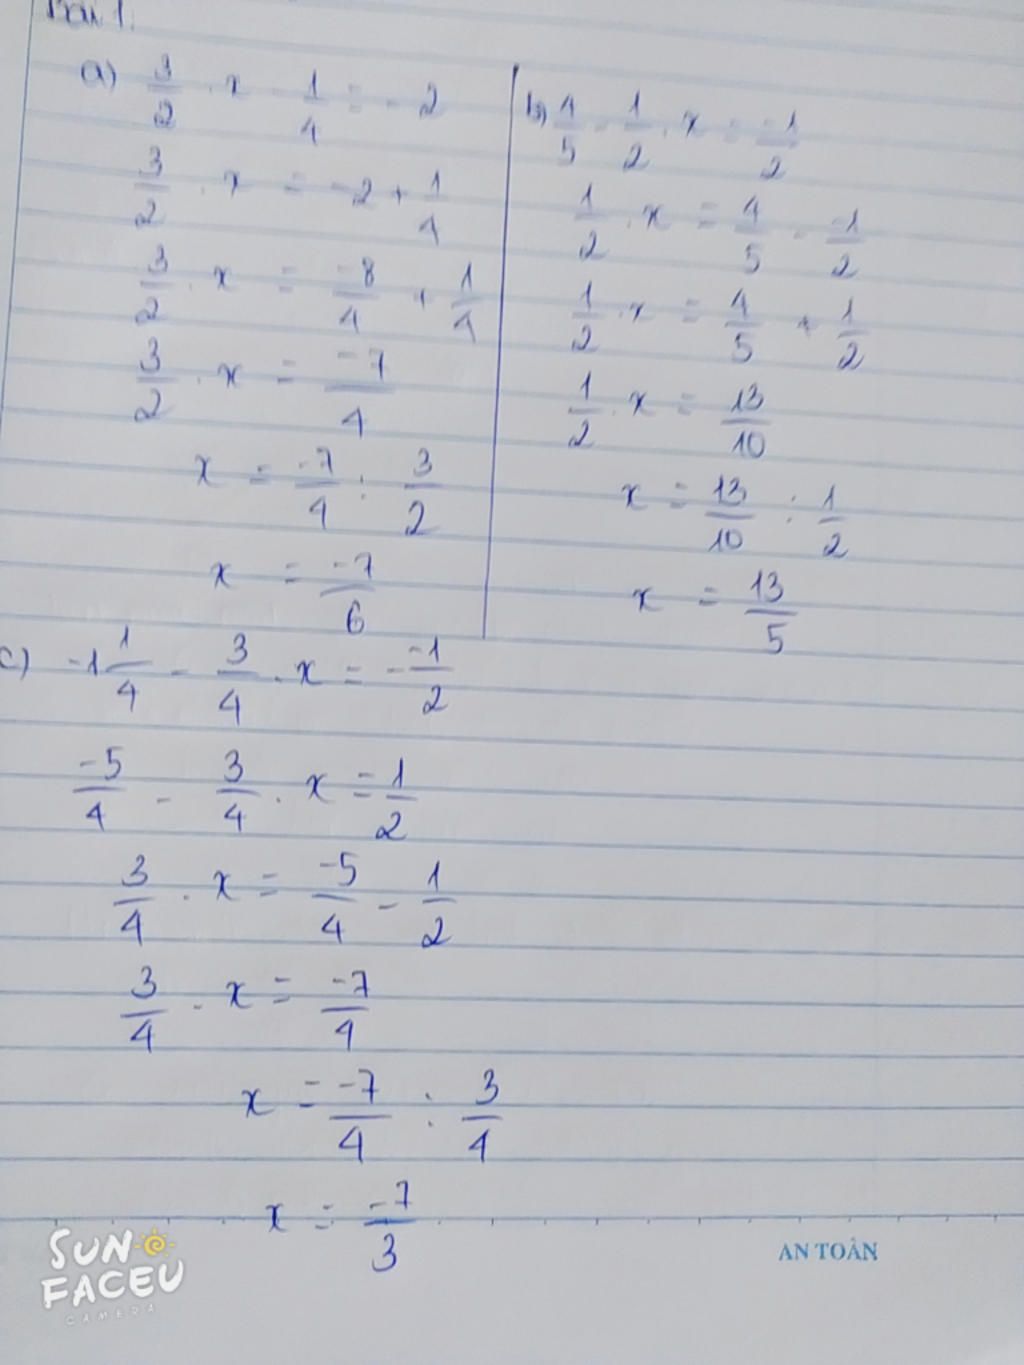 Bài 1.
a) 3/2 . x - 1/4 = -2
3/2 . x = -2 + 1/4
3/2 . x = -8/4 + 1/4
3/2 . x = -7/4
x = -7/4 : 3/2
x = -7/6
b) 4/5 - 1/2 . x = -1/2
1/2 . x = 4/5 - -1/2
1/2 . x = 4/5 + 1/2
1/2 . x = 13/10
x = 13/10 : 1/2
x = 13/5
c) -1 1/4 - 3/4 . x = - -1/2
-5/4 - 3/4 . x = 1/2
3/4 . x = -5/4 - 1/2
3/4 . x = -7/4
x = -7/4 : 3/4
x = -7/3
SUN
FACEU
CAMERA
AN TOÀN